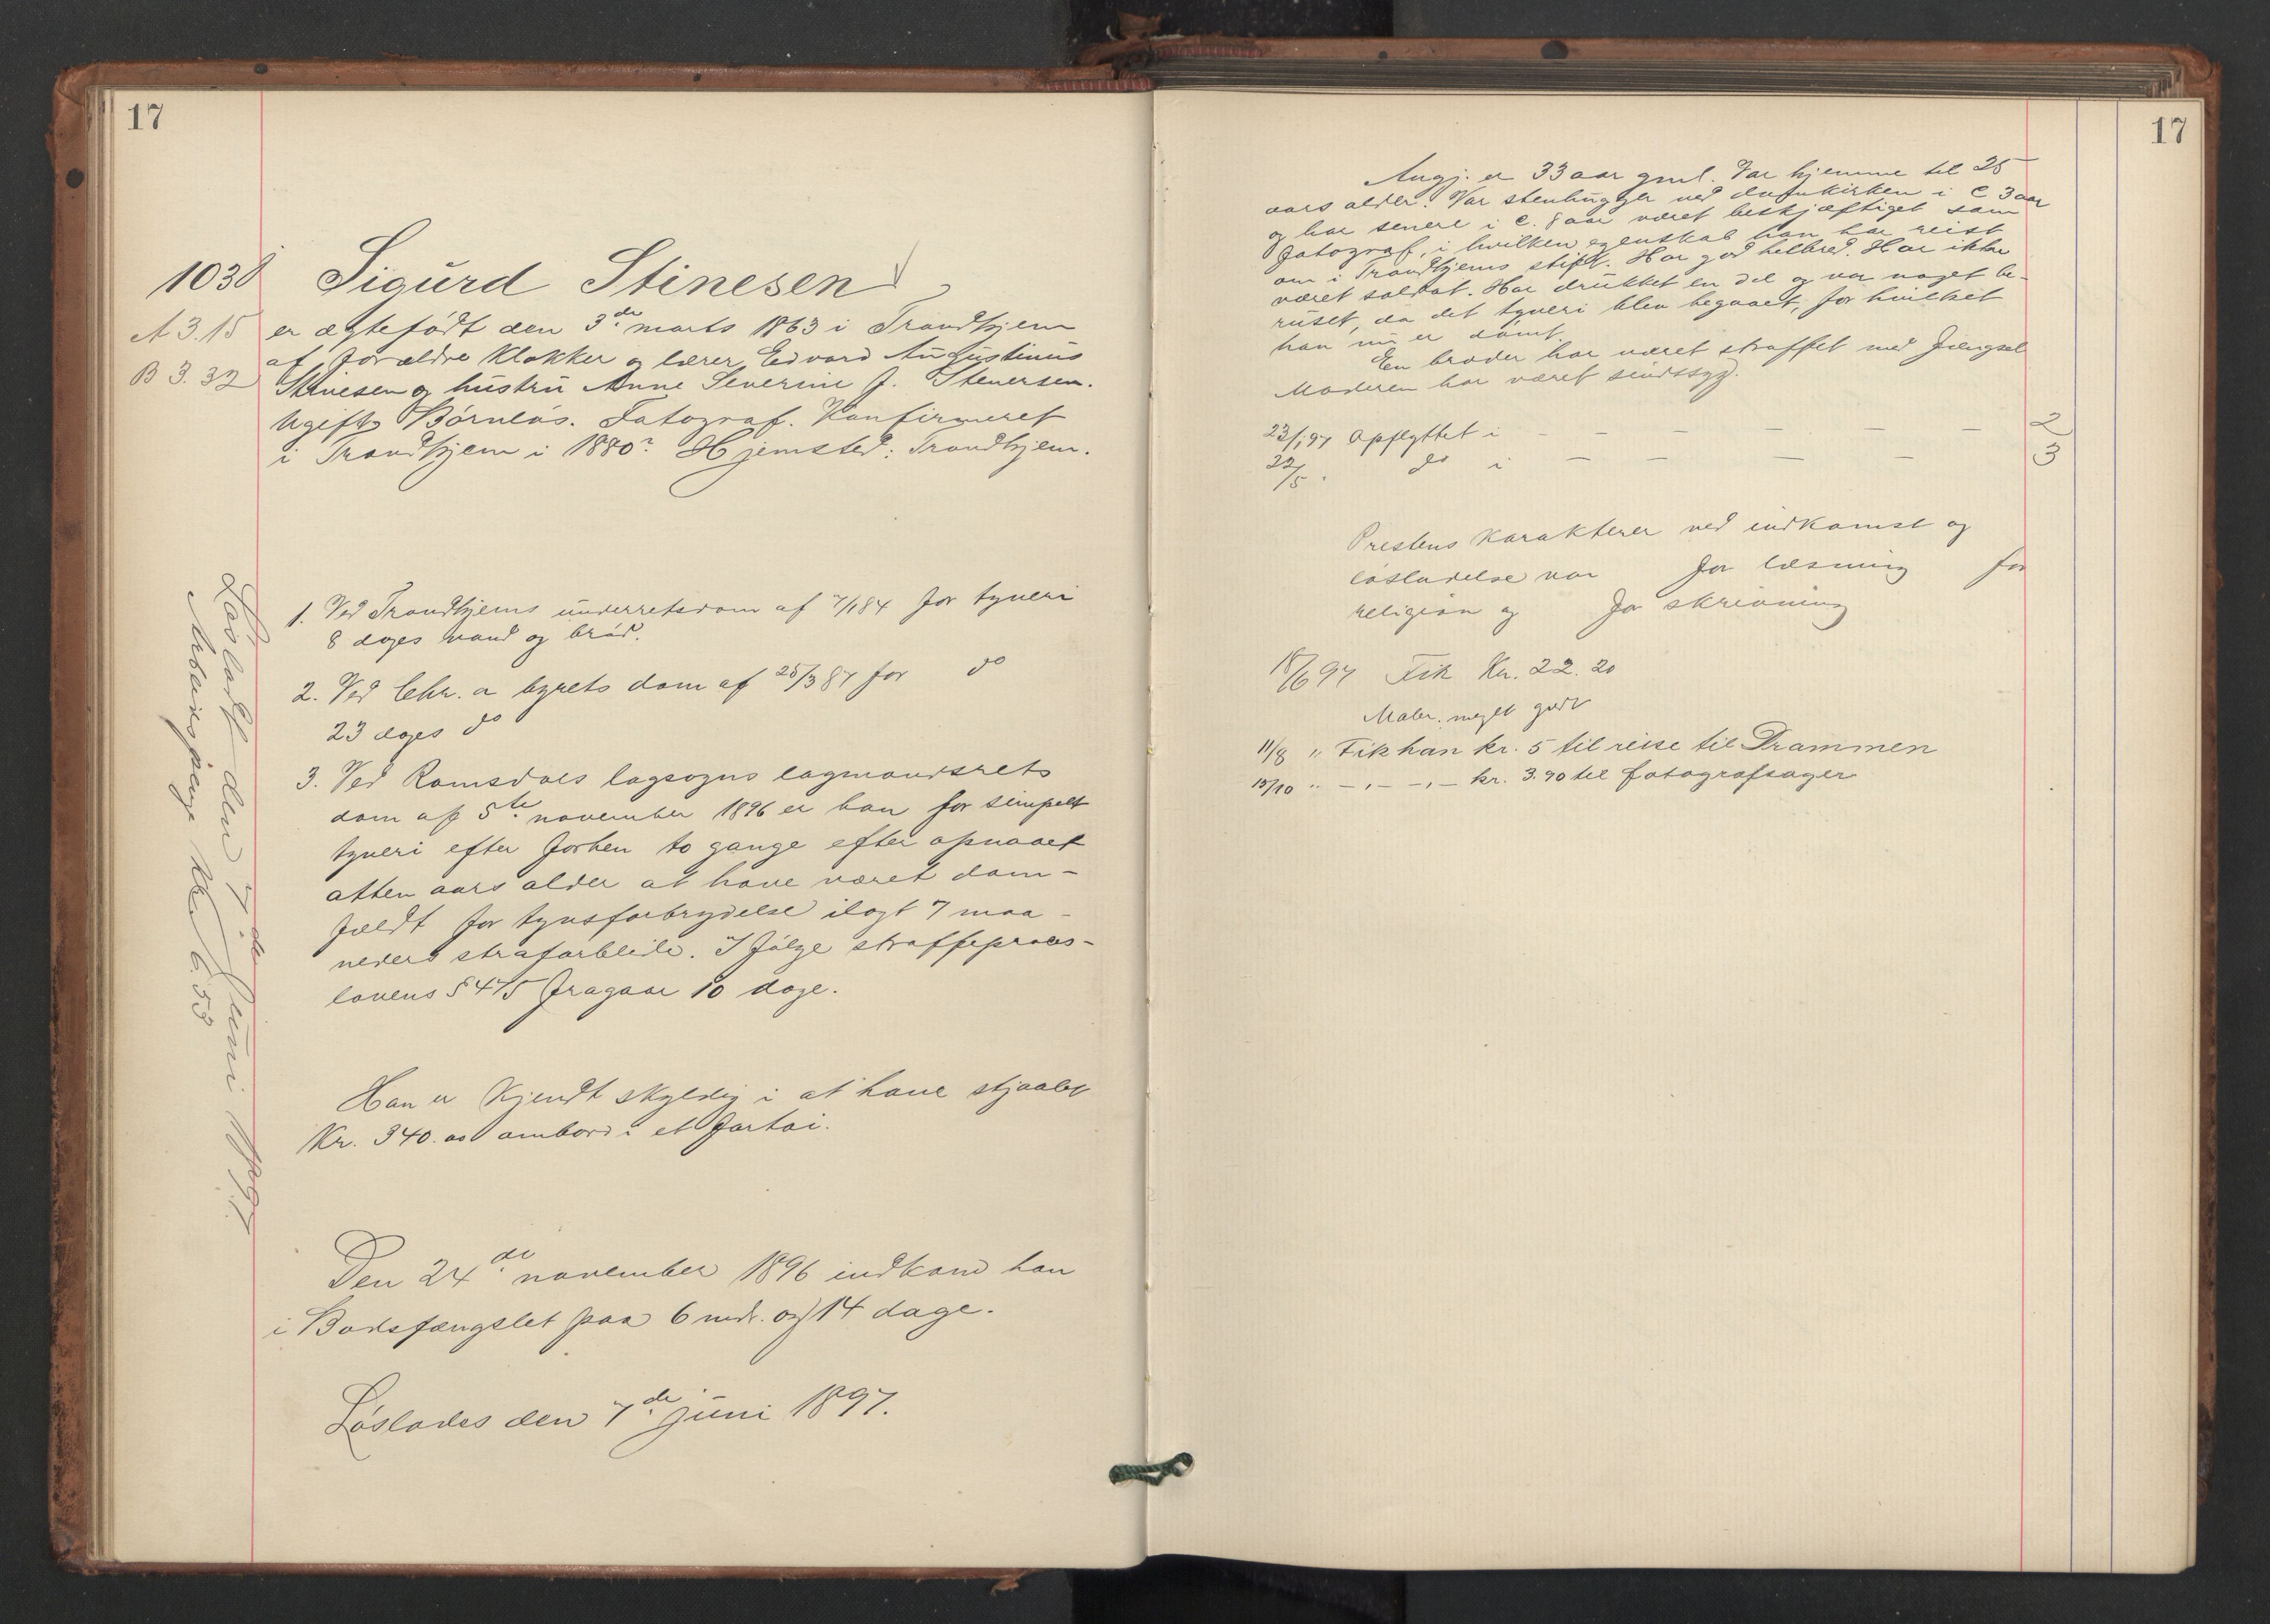 17
103
A 3.15
B 3.32
Sigurd Stinesen
er ægtefødt den 3de marts 1863 i Trondhjem
af forældre klokker og lærer Edvard Augustinus
Stinesen og hustru Anne Severine f. Stenersen.
Ugift. Børnløs. Fotograf. Konfirmeret
i Trondhjem i 1880? Hjemsted: Trondhjem.
1. Ved Trondhjems underretsdom af 7/1 84 for tyveri
8 dages vand og brød.
2. Ved Chr. a byrets dom af 25/3 87 for do
23 dages do
3. Ved Romsdals lagsogns lagmandsrets
dom af 5te november 1896 er han for simpelt
tyveri efter forhen to gange efter opnaaet
atten aars alder at have været dom-
fældt for tyvsforbrydelse ilagt 7 maa-
neders strafarbeide. I følge straffeproces-
lovens § 475 fragaar 10 dage.
Han er kjendt skyldig i at have stjaalet
Kr. 340.00 ombord i et fartøi.
Den 24de november 1896 indkom han
i Bodsfængslet paa 6 mdr. og 14 dage.
Løslades den 7de juni 1897.
Løsladt den 7de Juni 1897
Arbeidspenge Kr. 6.53
17
Angj. er 33 aar gml. Var hjemme til 25
aars alder. Var stenhugger ved domkirken i c 3 aar
og har senere i c. 8 aar været beskjæftiget som
fotograf, i hvilken egenskab han har reist
om i Trondhjems stift. Har god helbred. Har ikke
været soldat. Har drukket en del og var noget be-
ruset, da det tyveri blev begaaet, for hvilket
han nu er dømt.
En broder har været straffet med fængsel
Moderen har været sindssyg.
23/1 97 Opflyttet i - - - - - - 2
22/5 " do i - - - - 3
Prestens karakterer ved indkomst og
løsladelse var for læsning for
religion og for skrivning
18/6 97 Fik Kr. 22.20
Maler. meget godt
11/8 " Fik han kr. 5 til reise til Drammen
15/10 " -"- -"- kr. 3.90 til fotografsager